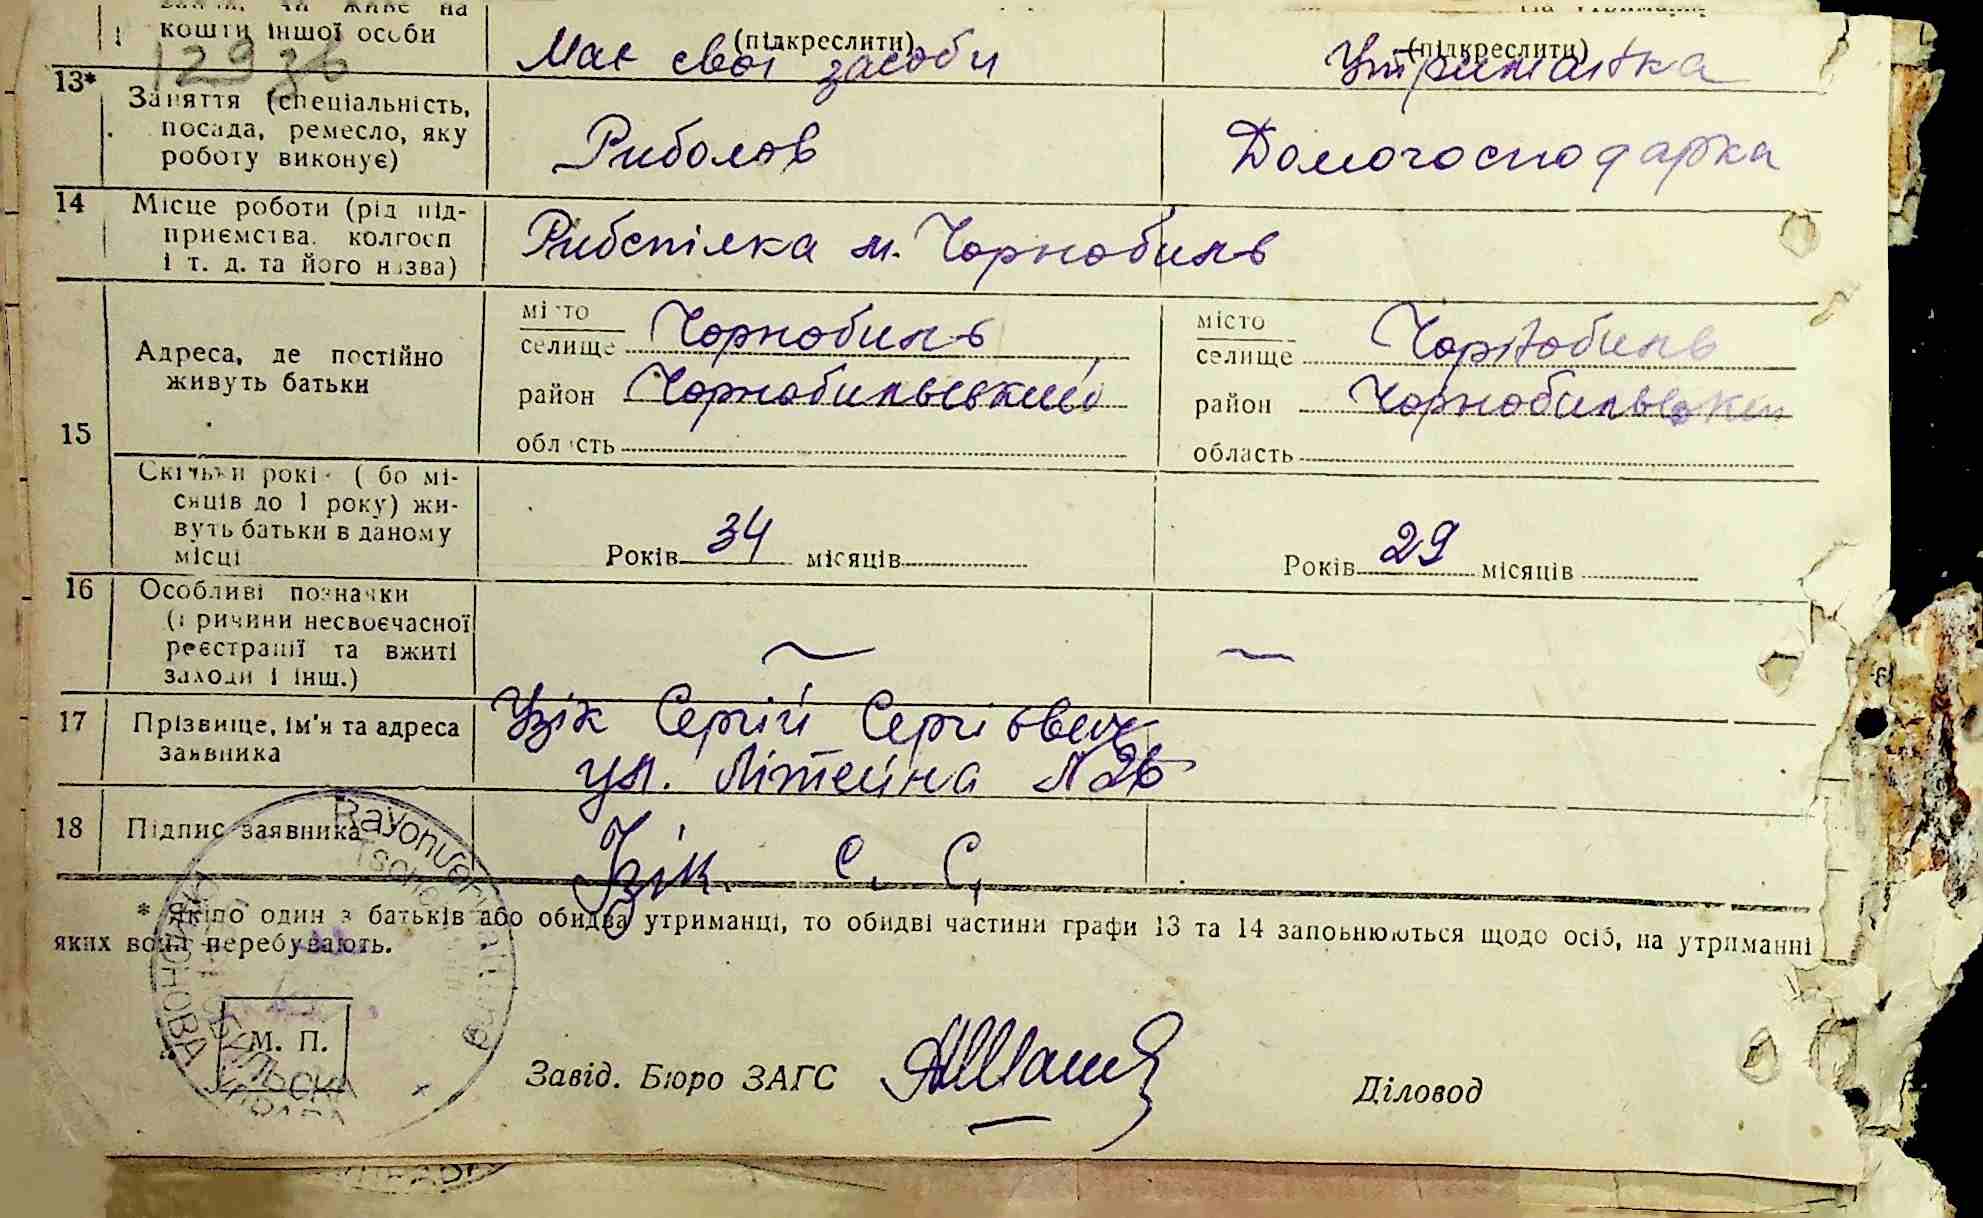 кошти іншої особи
(підкреслити) (підкреслити)
Має свої засоби Утриманка
12936
13* Заняття (спеціальність, посада, ремесло, яку роботу виконує)
Риболов Домогосподарка
14 Місце роботи (рід підприємства, колгосп і т. д. та його назва)
Рибспілка м. Чорнобиль
15 Адреса, де постійно живуть батьки
місто Чорнобиль місто Чорнобиль
селище селище
район Чорнобильський район Чорнобильський
область область
Скільки років (або місяців до 1 року) живуть батьки в даному місці
Років 34 місяців Років 29 місяців
16 Особливі позначки
(причини несвоєчасної
реєстрації та вжиті
заходи і інш.)
17 Прізвище, ім'я та адреса
заявника
Узік Сергій Сергієвич
ул. Літейна №26
18 Підпис заявника
Узік. С. С.
* Якщо один з батьків або обидва утриманці, то обидві частини графи 13 та 14 заповнюються щодо осіб, на утриманні
яких вони перебувають.
М. П.
Завід. Бюро ЗАГС Діловод